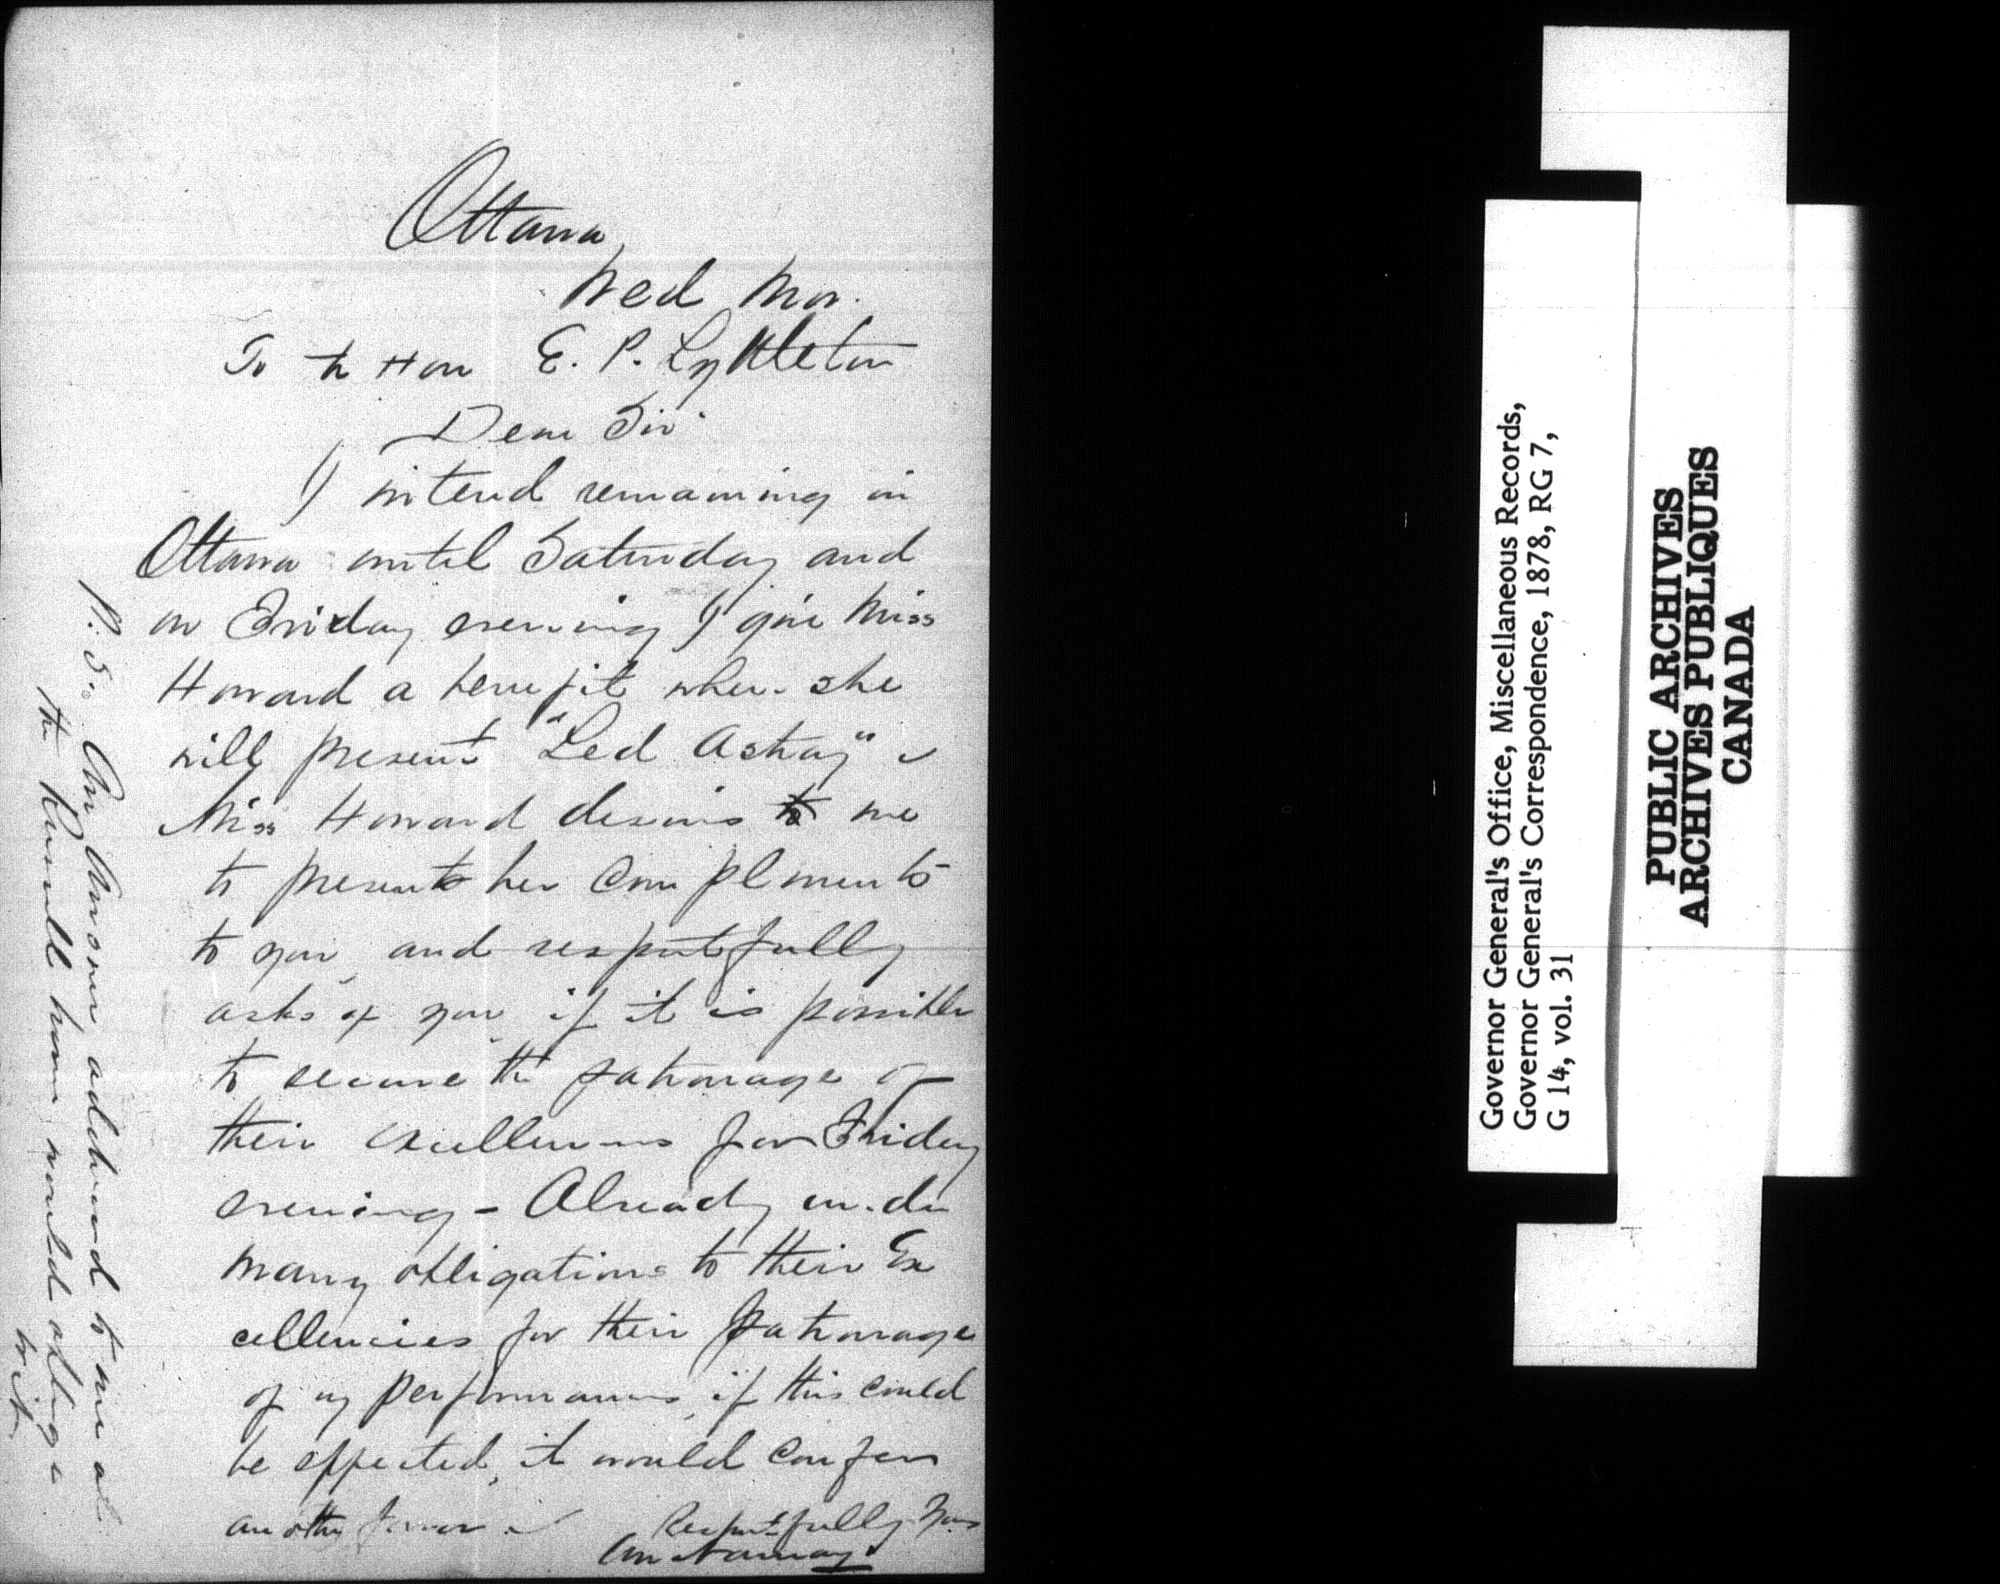 Ottawa,
Wed Mor.
To the Hon E. P. Lyttleton
Dear Sir
I intend remaining in
Ottawa until Saturday and
on Friday evening I give Miss
Howard a benefit when she
will present "Led Astray"
Miss Howard desires to me
to presents her compliments
to you, and respectfully
asks of you if it is possible
to secure the patronage of
their excellencies for Friday
evening - Already under
many obligations to their Ex
cellencies for their patronage
of my performances, if this could
be effected, it would confer
another favor
Respectfully Yours
P.S. An Answer addressed to me at
the Russell house would oblige
Governor General's Office, Miscellaneous Records,
Governor General's Correspondence, 1878, RG 7,
G 14, vol. 31
PUBLIC ARCHIVES
ARCHIVES PUBLIQUES
CANADA